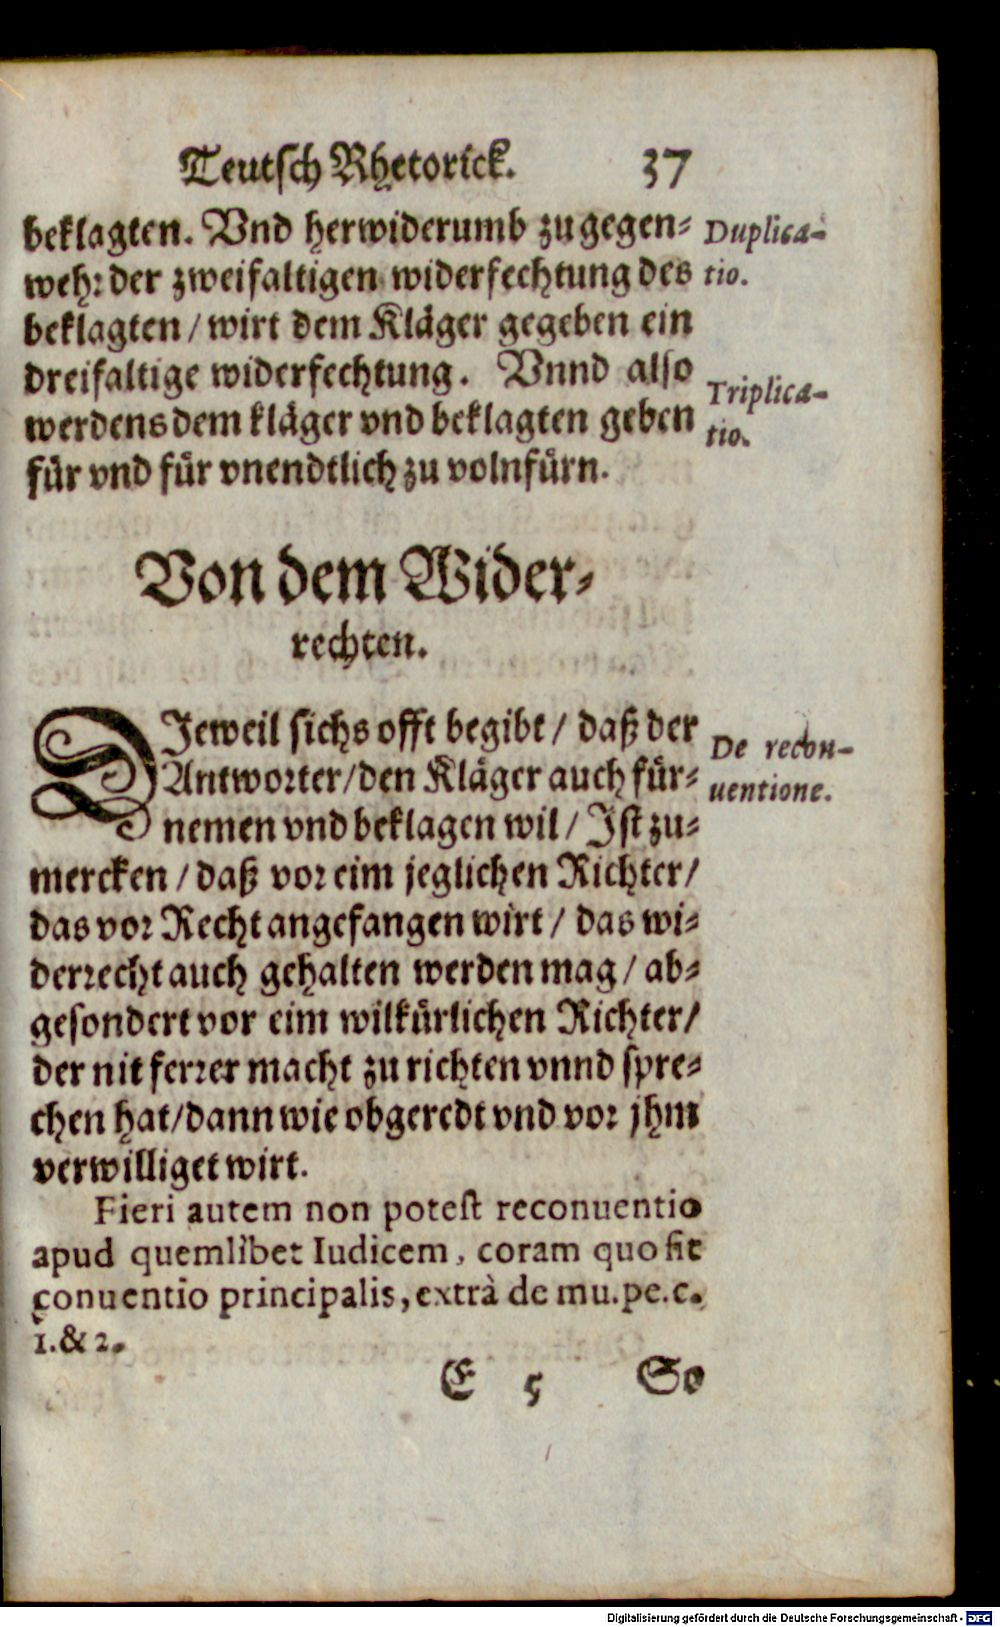 Teutsch Rhetorick. 37
beklagten. Vnd herwiderumb zu gegen-
wehr der zweifaltigen widerfechtung des
beklagten / wirt dem Kläger gegeben ein
dreifaltige widerfechtung. Vnnd also
werdens dem kläger vnd beklagten geben
für vnd für vnendtlich zu volnfürn.
Duplica-
tio.
Triplica-
tio.
Von dem Wider-
rechten.
DJeweil sichs offt begibt / daß der
Antworter / den Kläger auch für-
nemen vnd beklagen wil / Jst zu-
mercken / daß vor eim jeglichen Richter /
das vor Recht angefangen wirt / das wi-
derrecht auch gehalten werden mag / ab-
gesondert vor eim wilkürlichen Richter /
der nit ferrer macht zu richten vnnd spre-
chen hat / dann wie obgeredt vnd vor jhm
verwilliget wirt.
De recon-
uentione.
Fieri autem non potest reconuentio
apud quemlibet Iudicem, coram quo fit
conuentio principalis, extrà de mu.pe.c.
1.& 2.
E 5 So
Digitalisierung gefördert durch die Deutsche Forschungsgemeinschaft - DFG